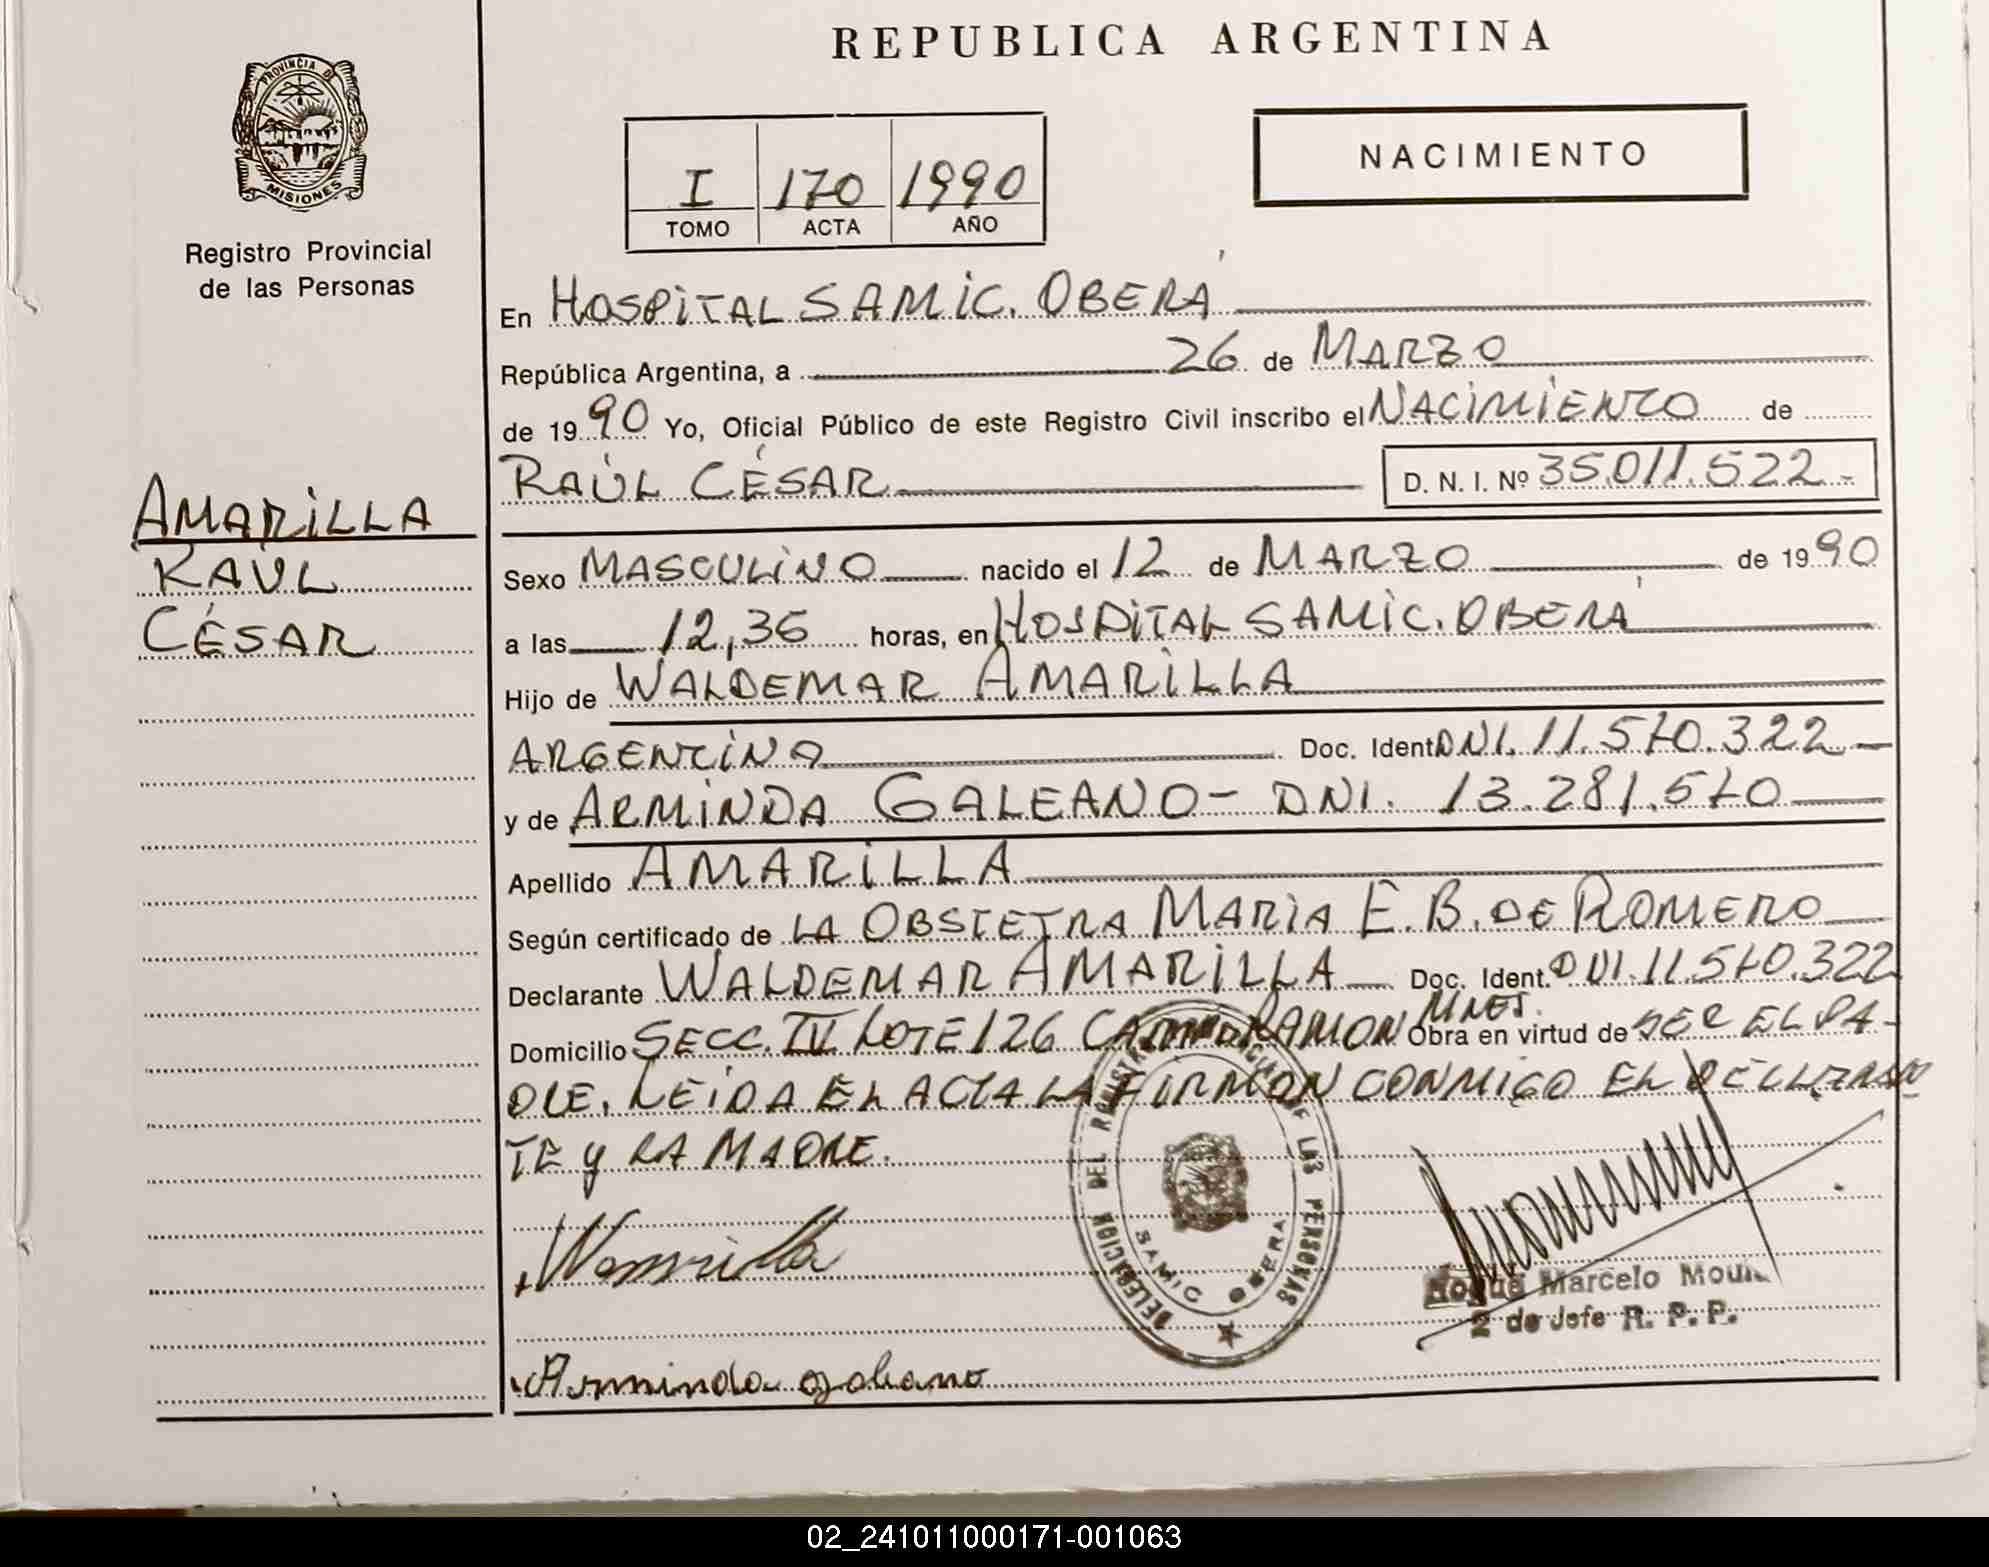 REPUBLICA ARGENTINA
PROVINCIA DE
MISIONES
Registro Provincial
de las Personas
I 170 1990
TOMO ACTA AÑO
NACIMIENTO
En HOSPITAL SAMIC. OBERÁ
República Argentina, a 26 de MARZO
de 1990 Yo, Oficial Público de este Registro Civil inscribo el NACIMIENTO de
RAÚL CÉSAR D. N. I. Nº 35.011.522.-
AMARILLA
RAÚL
CÉSAR
Sexo MASCULINO nacido el 12 de MARZO de 1990
a las 12,36 horas, en HOSPITAL SAMIC. OBERÁ
Hijo de WALDEMAR AMARILLA
ARGENTINO Doc. Ident. DNI. 11.570.322-
y de ARMINDA GALEANO - DNI. 13.281.570
Apellido AMARILLA
Según certificado de LA OBSTETRA MARIA E. B. DE ROMERO
Declarante WALDEMAR AMARILLA Doc. Ident. DNI. 11.570.322
Domicilio SECC. IV LOTE 126 CAMPO RAMON MNES. Obra en virtud de SER EL PA-
DRE. LEIDA EL ACTA LA FIRMAN CONMIGO EL DECLARAN
TE y LA MADRE.
DELEGACION DEL REGISTRO PROVINCIAL DE LAS PERSONAS
SAMIC OBERA
WAmarilla
Marcelo
2 do Jefe R. P. P.
Arminda galeano
02_241011000171-001063